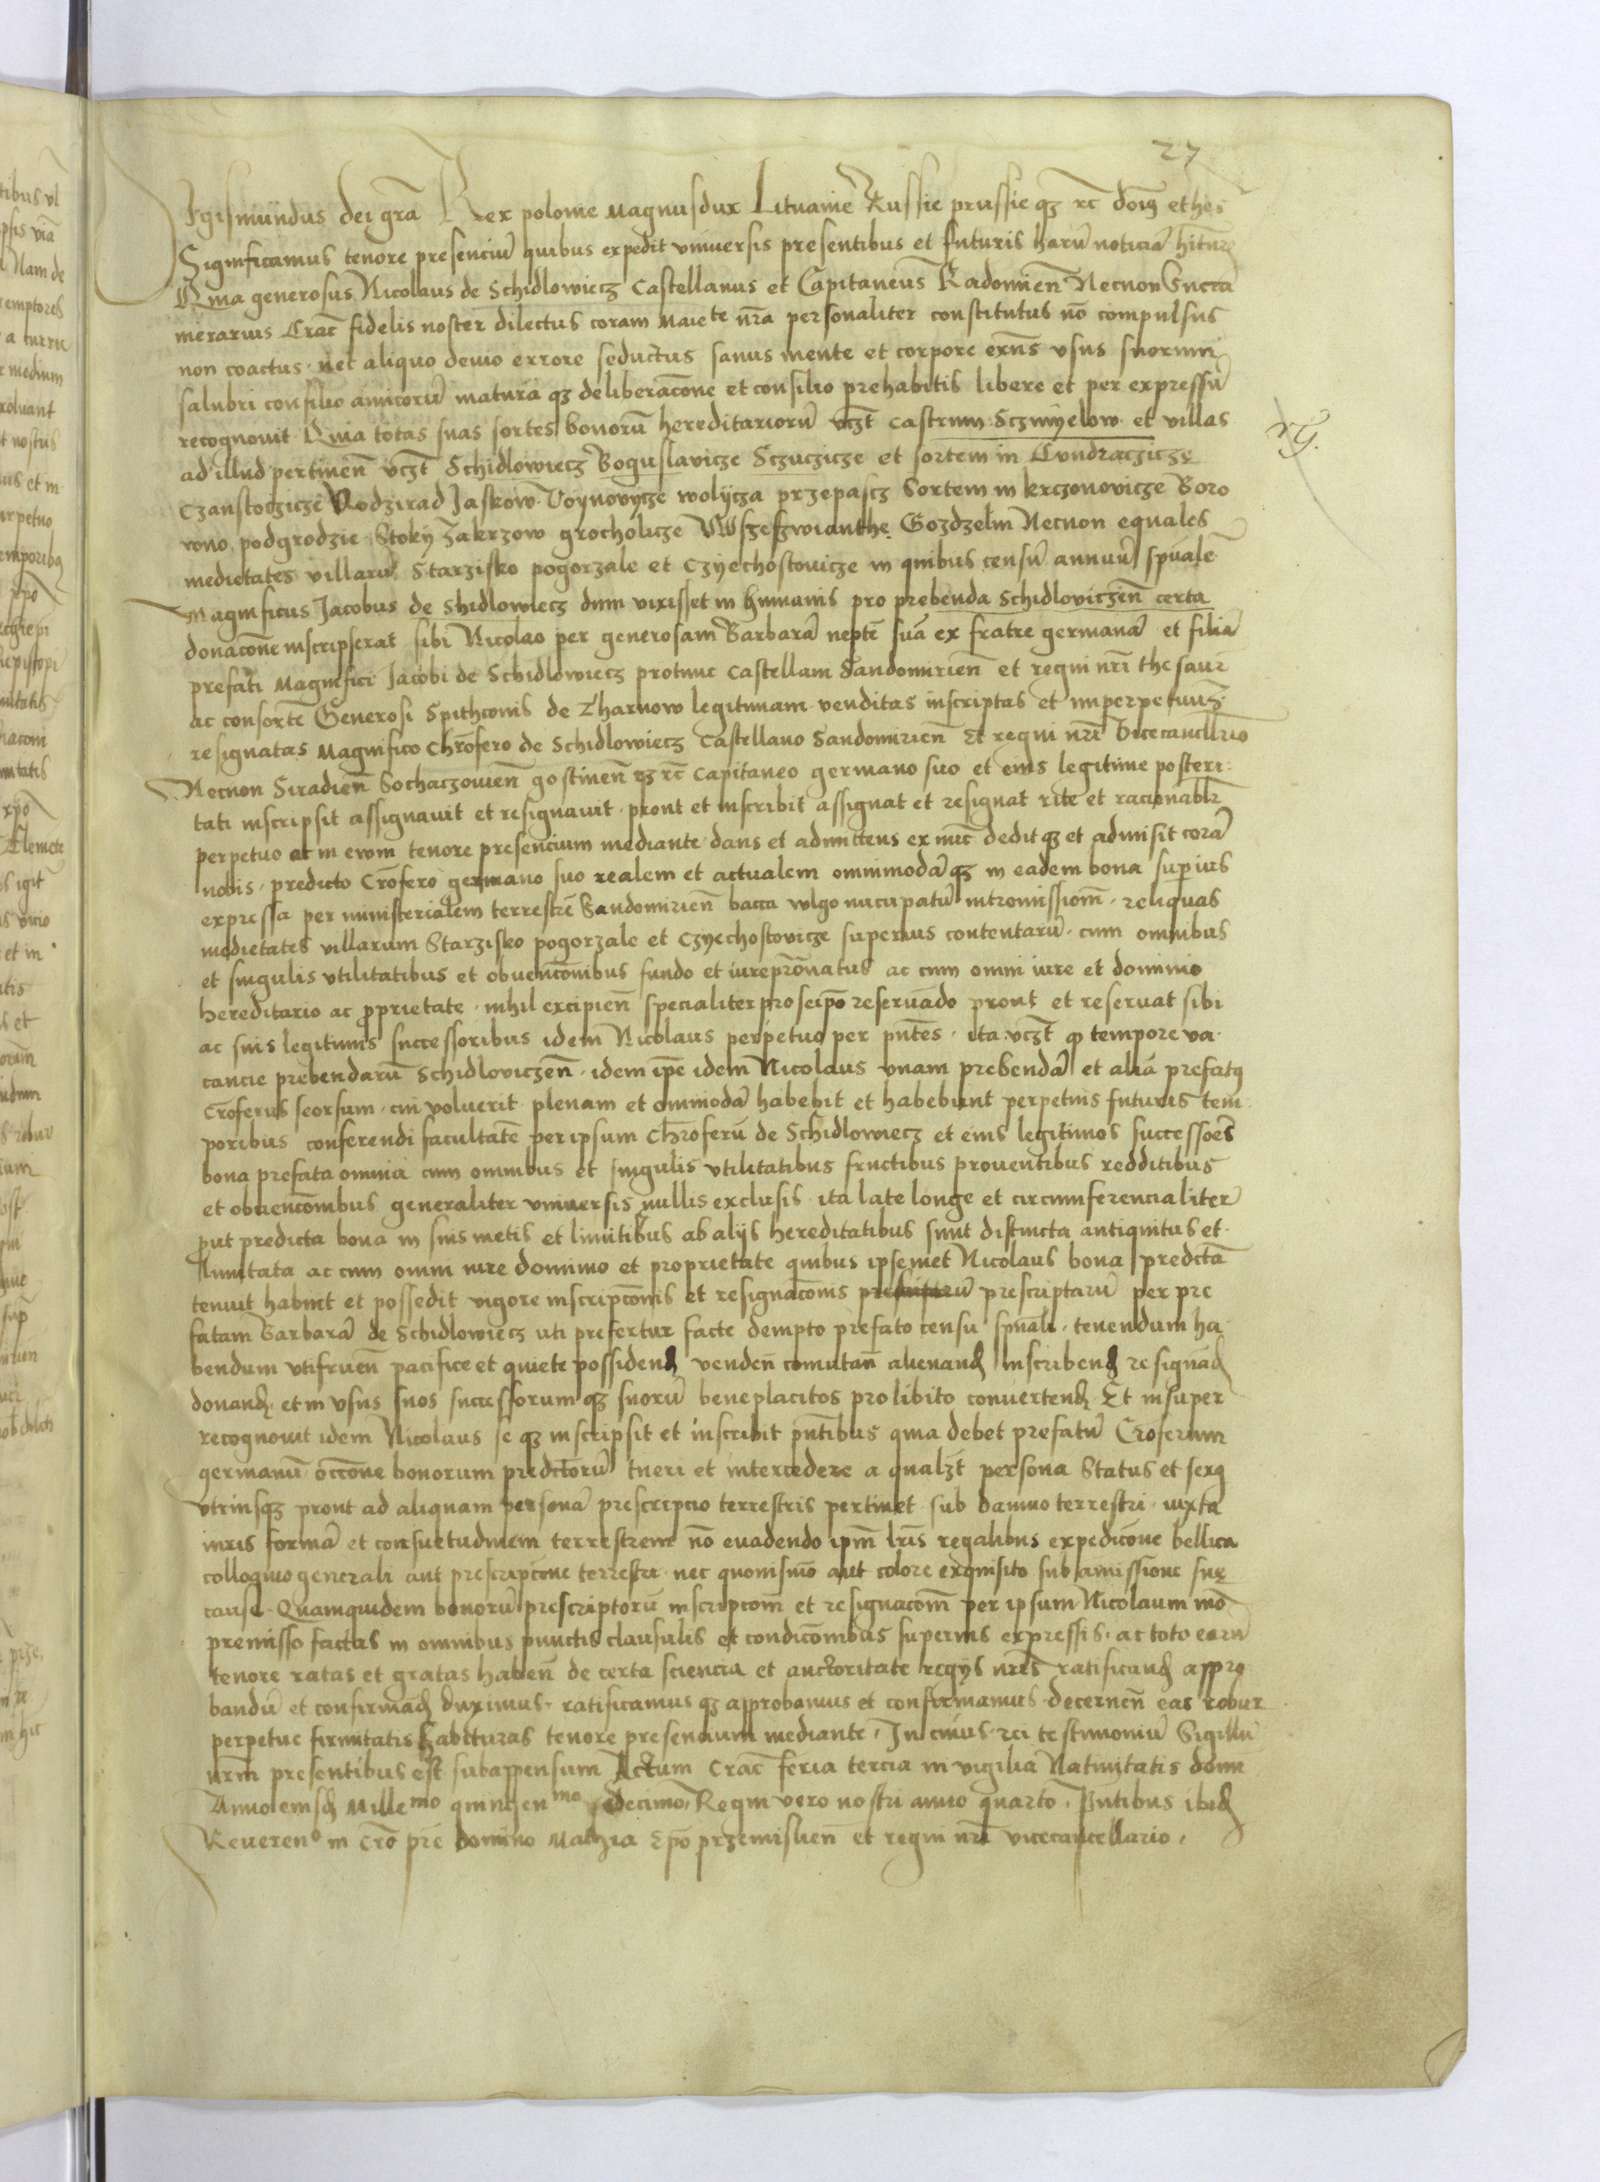 27
Sigismundus dei grā Rex polonie Magnusdux Lituanie Russie prussie qз rc̄ doīs et hēs
Significamus tenore presenciū quibus expedit vniversis presentibus et futuris harū noticiā hituris
Quia generosus Nicolaus de Schidlowiecz Castellanus et Capitaneus Radomieñ Necnon Succa
merarius Crac̄ fidelis noster dilectus coram Maiete nr̄a personaliter constitutus nō compulsus
non coactus nec aliquo devio errore seductus sanus mente et corpore exns̄ vsus suorum
salubri consilio amicorū matura qз deliberacōne et consilio prehabitis libere et per expressū
recognovit Quia totas suas sortes bonorū hereditariorū vczt castrum Sczmyelow et villas
ad illud pertineñ vczt Schidlowiecz Boguslavicze Sczuczicze et sortem in Cundraczicze
Czanstoczicze Rodzirad Jaskow Voynovycze wolycza przepascz Sortem in krczonovicze Boro
wno podgrodzie Stoky Zakrzow grocholicze Wszeszwianthe Gozdzelin Necnon equales
medietates villarū Starzisko pogorzale et Czyechostovicze in quibus censū annuū spūale
Magnificus Jacobus de Shidlowiecz dum vixisset in humanis pro prebenda Schidloviczeñ certa
donacōne inscripserat sibi Nicolao per generosam Barbarā neptē suā ex fratre germanā et filiā
prefati Magnifici Jacobi de Schidlowiecz protunc Castellani Sandomirieñ et regni nr̄i thesaur̄
ac consortē Generosi Spithconis de Tharnow legitimam venditas inscriptas et imperpetuū
resignatas Magnifico Chrōfero de Schidlowiecz Castellano Sandomirieñ Et regni nr̄i Vicecancllrio
Necnon Siradieñ Sochaczovieñ gostineñ qз rc̄ Capitaneo germano suo et eius legitime posteri
tati inscripsit assignavit et resignavit prout et inscribit assignat et resignat rite et racionablr̄
perpetuo et in evum tenore presencium mediante dans et admittens ex nūc dedit qз et admisit corā
nobis predicto Crōfero germano suo realem et actualem omnimodā qз in eadem bona superius
expressa per ministerialem terrestrē Sandomirieñ bacca vulgo nūcupatū intromissionē reliquas
medietates villarum Starzisko pogorzale et Czyechostovicze superius contentarū cum omnibus
et singulis vtilitatibus et obvencōnibus fundo et iurepr̄onatus ac cum omni iure et dominio
hereditario ac proprietate nihil excipieñ specialiter pro seipō reservādo prout et reservat sibi
ac suis legitimis successoribus idem Nicolaus perpetuo per pn̄tes ita vczt qз tempore va
cancie prebendarū Schidloviczeñ idem ipē idem Nicolaus vnam prebendā et aliā prefatus
Crōferus seorsum cui voluerit plenam et ommodā habebit et habebunt perpetuis futuris tem
poribus conferendi facultatē per ipsum Chrōferū de Schidlowiecz et eius legitimos successoēs
bona prefata omnia cum omnibus et singulis vtilitatibus fructibus proventibus redditibus
et obvencōnibus generaliter vniversis nullis exclusis ita late longe et circumferencialiter
prout predicta bona in suis metis et limitibus ab aliis hereditatibus sunt distincta antiquitus et
limitata ac cum omni iure dominio et proprietate quibus ipsemet Nicolaus bona predcta
tenuit habuit et possedit vigore inscripcōnis et resignacōnis prescriptarū per pre
fatam Barbarā de Schidlowiecz uti prefertur facte dempto prefato censu spūali tenendum ha
bendum vtifrueñ pacifice et quiete possidend vendeñ comutañ alienand inscribend resignād
donand et in vsus suos successorum qз suorū beneplacitos prolibito convertend Et insuper
recognovit idem Nicolaus se qз inscripsit et inscribit pn̄tibus quia debet prefatū Crōferum
germanū occōne bonorum predctorū tueri et intercedere a qualzt persona Status et sexus
vtriusqз prout ad aliquam personā prescripcio terrestris pertinet sub damno terrestri iuxta
iuris formā et consuetudinem terrestrem nō evadendo ipm̄ lr̄is regalibus expedicōne bellica
colloquio generali aut prescripcōne terrestri nec quovismō aut colore exquisito sub amissione sue
cause Quamquidem bonorū prescriptorū inscripcōm et resignacōm per ipsum Nicolaum mō
premisso factas in omnibus punctis clausulis et condicōnibus superius expressis ac toto earū
tenore ratas et gratas habeñ de certa sciencia et auctoritate regiis nr̄is ratificand appro
bandū et confirmād duximus ratificamus qз approbamus et confirmamus decerneñ eas robur
perpetue firmitatis habituras tenore presencium mediante In cuius rei testimoniū Sigillū
nrm̄ presentibus est subappensum Actum Crac̄ feria tercia in vigilia Nativitatis domī
Anno eiusd Mille mo quingen mo decimo Regni vero nostri anno quarto Pn̄tibus ibid
Reveren o in Crō prē domino Mathia Epō przemislieñ et regni nr̄i vicecancellario